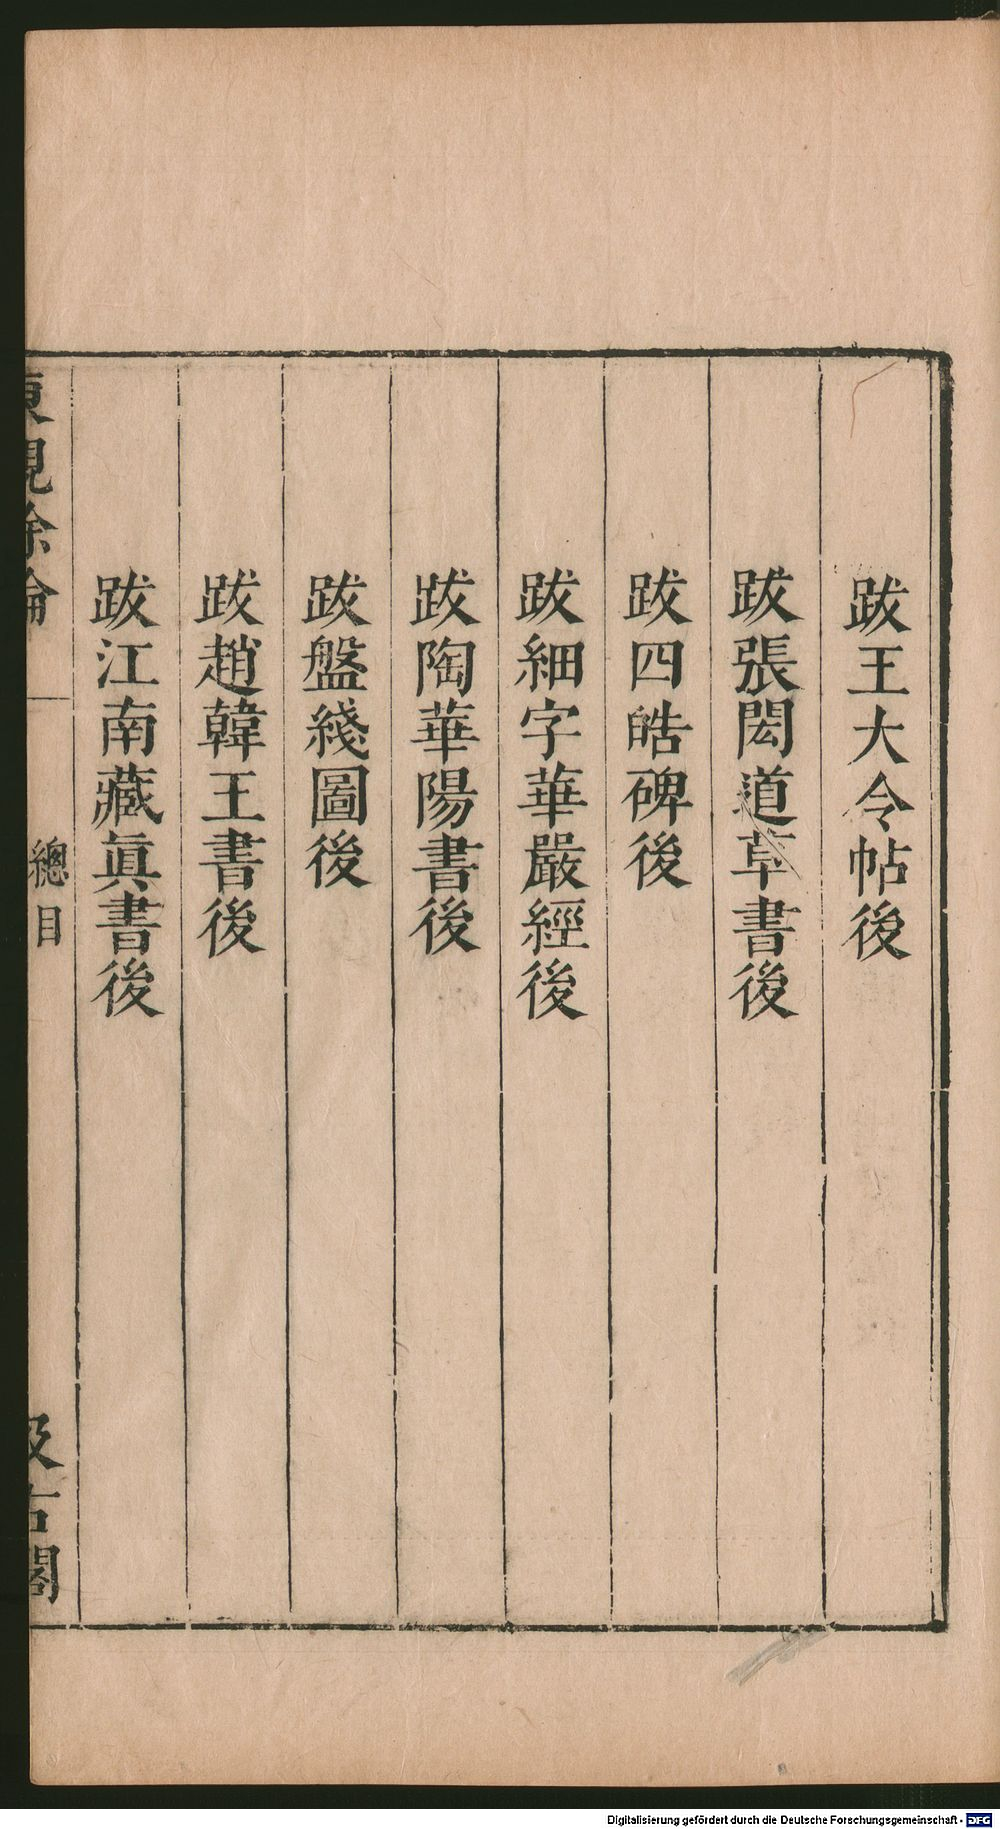 跋王大令帖後
跋張閎道草書後
跋四皓碑後
跋細字華嚴經後
跋陶華陽書後
跋盤綫圖後
跋趙韓王書後
跋江南藏眞書後
東觀餘論
總目
汲古閣
Digitalisierung gefördert durch die Deutsche Forschungsgemeinschaft - DFG